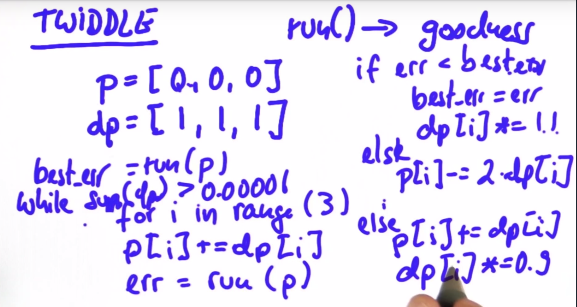 TWIDDLE
p = [0, 0, 0]
dp = [1, 1, 1]
best_err = run(p)
while sum(dp) > 0.00001
for i in range (3)
p[i] += dp[i]
err = run(p)
run() → goodness
if err < best_err
best_err = err
dp[i] *= 1.1
else
p[i] -= 2·dp[i]
else
p[i] += dp[i]
dp[i] *= 0.9